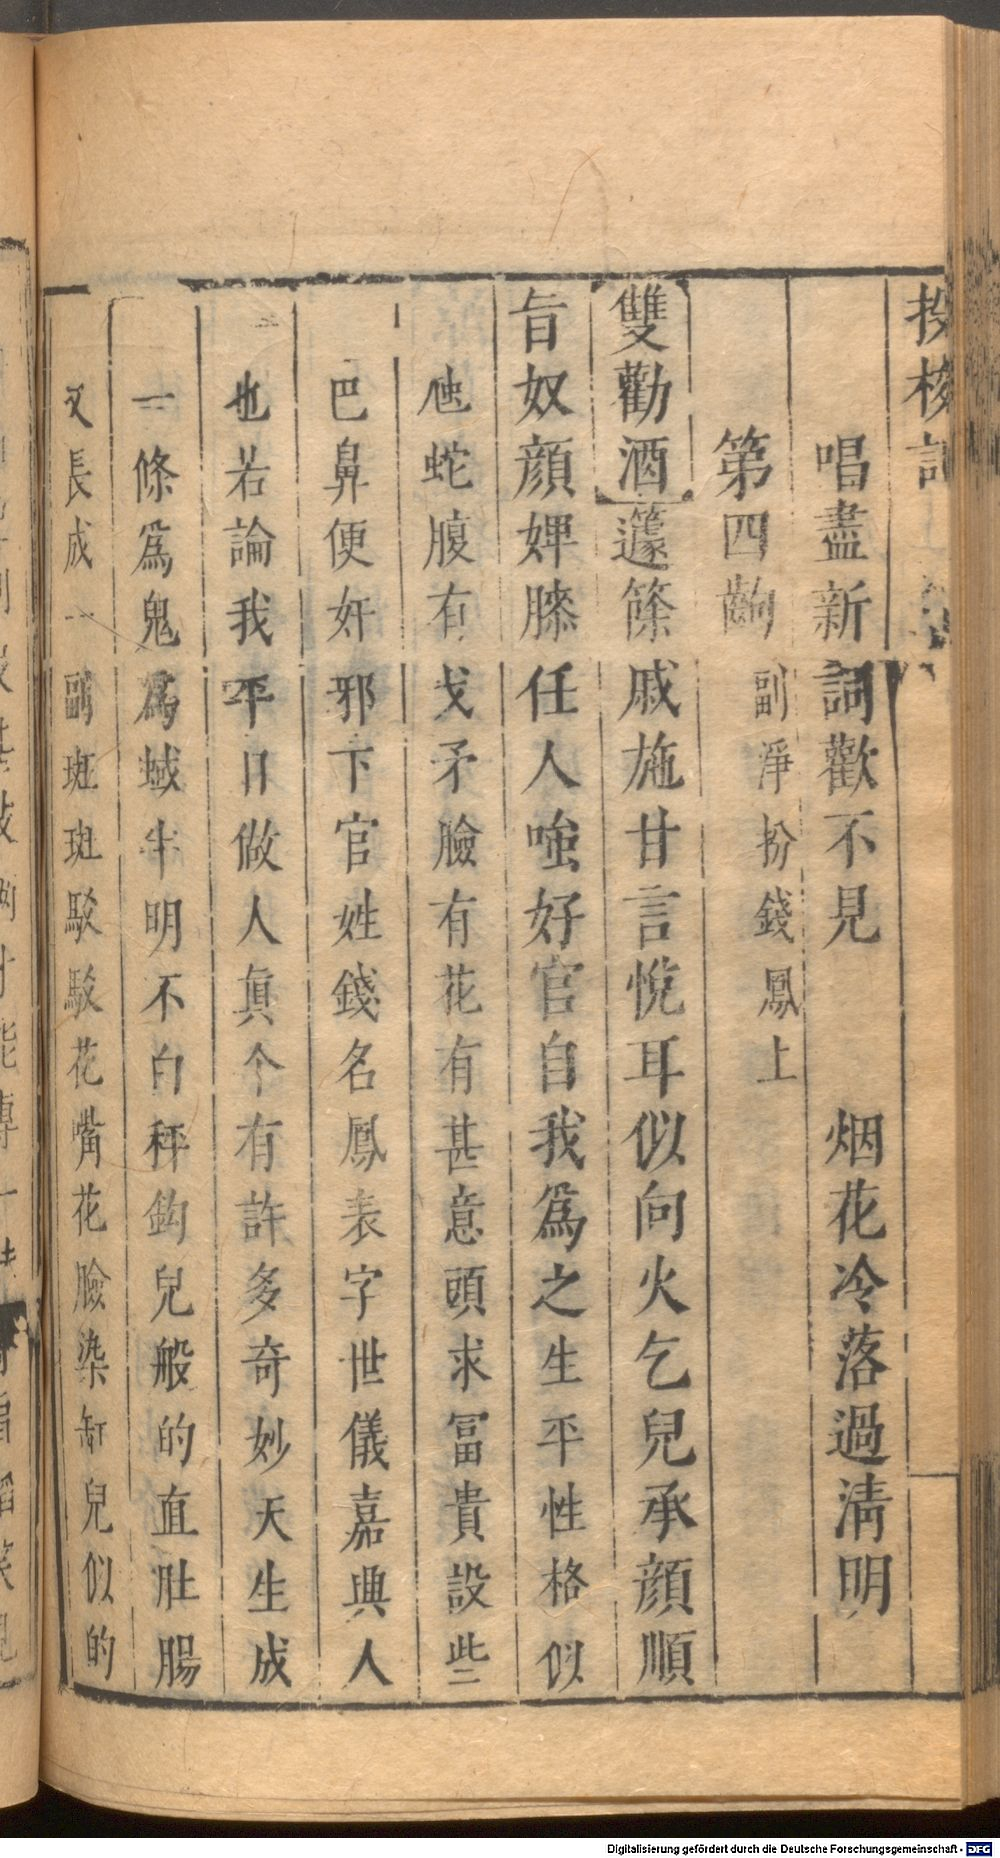 投梭記
唱盡新詞歡不見　烟花冷落過清明
第四齣　副淨扮錢鳳上
雙勸酒　籧篨戚施甘言悅耳似向火乞兒承顏順
旨奴顏婢膝任人嗤好官自我爲之生平性格似
虺蛇腹有戈矛臉有花有甚意頭求冨貴設些
巴鼻便奸邪下官姓錢名鳳表字世儀嘉興人
也若論我平日做人眞个有許多奇妙天生成
一條爲鬼爲蜮牛明不白秤鈎兒般的直肚腸
又長成一副斑斑駁駁花嘴花臉染缸兒似的
Digitalisierung gefördert durch die Deutsche Forschungsgemeinschaft - DFG